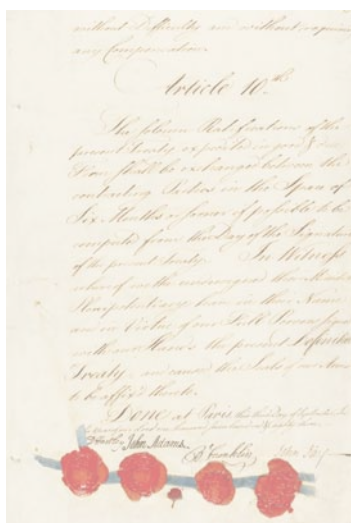 without Difficulty and without requiring
any Compensation.
Article 10th
The solemn Ratifications of the
present Treaty expedited in good & due
Form shall be exchanged between the
contracting Parties in the Space of
Six Months or sooner if possible to be
computed from the Day of the Signature
of the present Treaty. In Witness
whereof we the undersigned their Ministers
Plenipotentiary have in their Name
and in Virtue of our Full Powers signed
with our Hands the present Definitive
Treaty, and caused the Seals of our Arms
to be affix'd thereto.
Done at Paris, this third Day of September
D Hartley John Adams. B Franklin John Jay